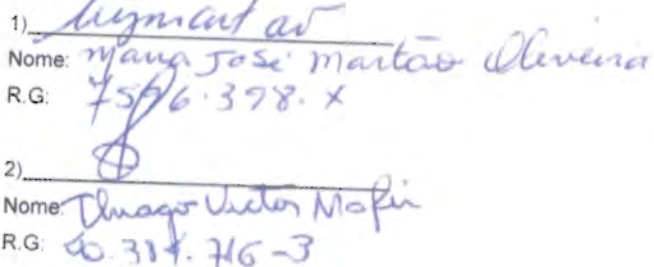 1)
Nome: Maria José Martão Oliveira
R.G: 7596.398.X
2)
Nome: Thiago Victor
R.G: 40.384.716-3